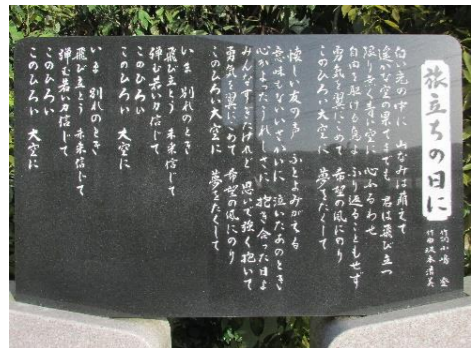 旅立ちの日に
作詞 小嶋 登
作曲 坂本 浩美
白い光の中に 山なみは萌えて
遥かな空の果てまでも 君は飛び立つ
限り無く青い空に 心ふるわせ
自由を駆ける鳥よ ふり返ることもせず
勇気を翼にこめて 希望の風にのり
このひろい大空に 夢をたくして
懐しい友の声 ふとよみがえる
意味もないいさかいに 泣いたあのとき
心かよったうれしさに 抱き合った日よ
みんなすぎたけれど 思いで強く抱いて
勇気を翼にこめて 希望の風にのり
このひろい大空に 夢をたくして
いま 別れのとき
飛び立とう 未来信じて
弾む若い力信じて
このひろい
このひろい 大空に
いま 別れのとき
飛び立とう 未来信じて
弾む若い力信じて
このひろい
このひろい 大空に